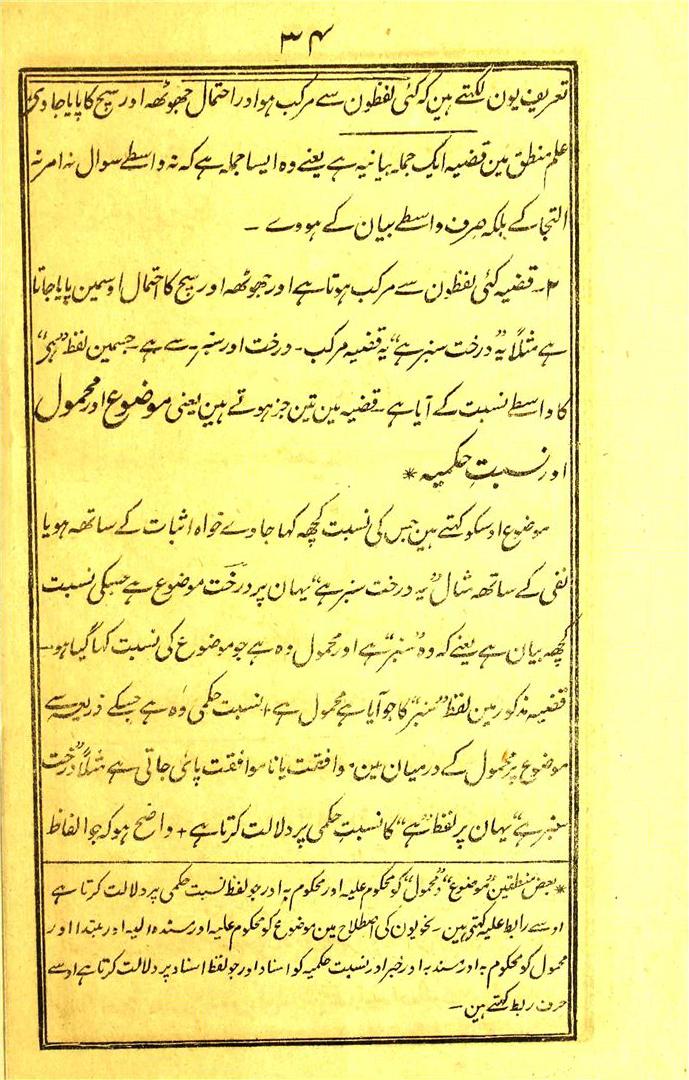 ۳۴
تعریف یون لکھتے ہین کہ کئی لفظون سے مرکب ہو اور احتمال جھوٹھ اور سچ کا پایا جاوے
علم منطق مین قضیہ ایک جملہ بیانیہ ہے یعنے وہ ایسا جملہ ہے کہ نہ واسطے سوال نہ امر نہ
التجا کے بلکہ صرف واسطے بیان کے ہووے ـ
۲ـ قضیہ کئی لفظون سے مرکب ہوتا ہے اور جھوٹھ اور سچ کا احتمال اوسمین پایا جاتا
ہے مثلاً یہ ”درخت سبز ہے“ یہ قضیہ مرکب ـ درخت اور سبز ـ سے ہے ـ جسمین لفظ ”ہی“
کا واسطے نسبت کے آیا ہے ـ قضیہ مین تین جز ہوتے ہین یعنی موضوع اور محمول
اور نسبتِ حکمیہ *
موضوع اوسکو کہتے ہین جس کی نسبت کچھ کہا جاوے خواہ اثبات کے ساتھ ہو یا
نفی کے ساتھ مثال ”یہ درخت سبز ہے“ یہان پر درخت موضوع ہے جسکی نسبت
کچھ بیان ہے یعنے کہ وہ ”سبز“ ہے اور محمول وہ ہے جو موضوع کی نسبت کہا گیا ہو ـ
قضیہ مذکور مین لفظ ”سبز“ کا جو آیا ہے محمول ہے + نسبت حکمی وہ ہے جسکے ذریعہ سے
موضوع و محمول کے درمیان مین موافقت یا ناموافقت پائی جاتی ہے مثلاً ”درخت
سبز ہے“ یہان پر لفظ ”ہے“ کا نسبتِ حکمی پر دلالت کرتا ہے + واضح ہو کہ جو الفاظ
* بعض منطقین ”موضوع“ و ”محمول“ کو محکوم علیہ اور محکوم بہ اور جو لفظ نسبت حکمی پر دلالت کرتا ہے
اوسے رابط علیہ کہتی ہین ـ نحویون کی اصطلاح مین موضوع کو محکوم علیہ اور مسند الیہ اور مبتدا اور
محمول کو محکوم بہ اور مسند بہ اور خبر اور نسبت حکمیہ کو اسناد اور جو لفظ اسناد پر دلالت کرتا ہے اوسے
حرف ربط کہتے ہین ـ